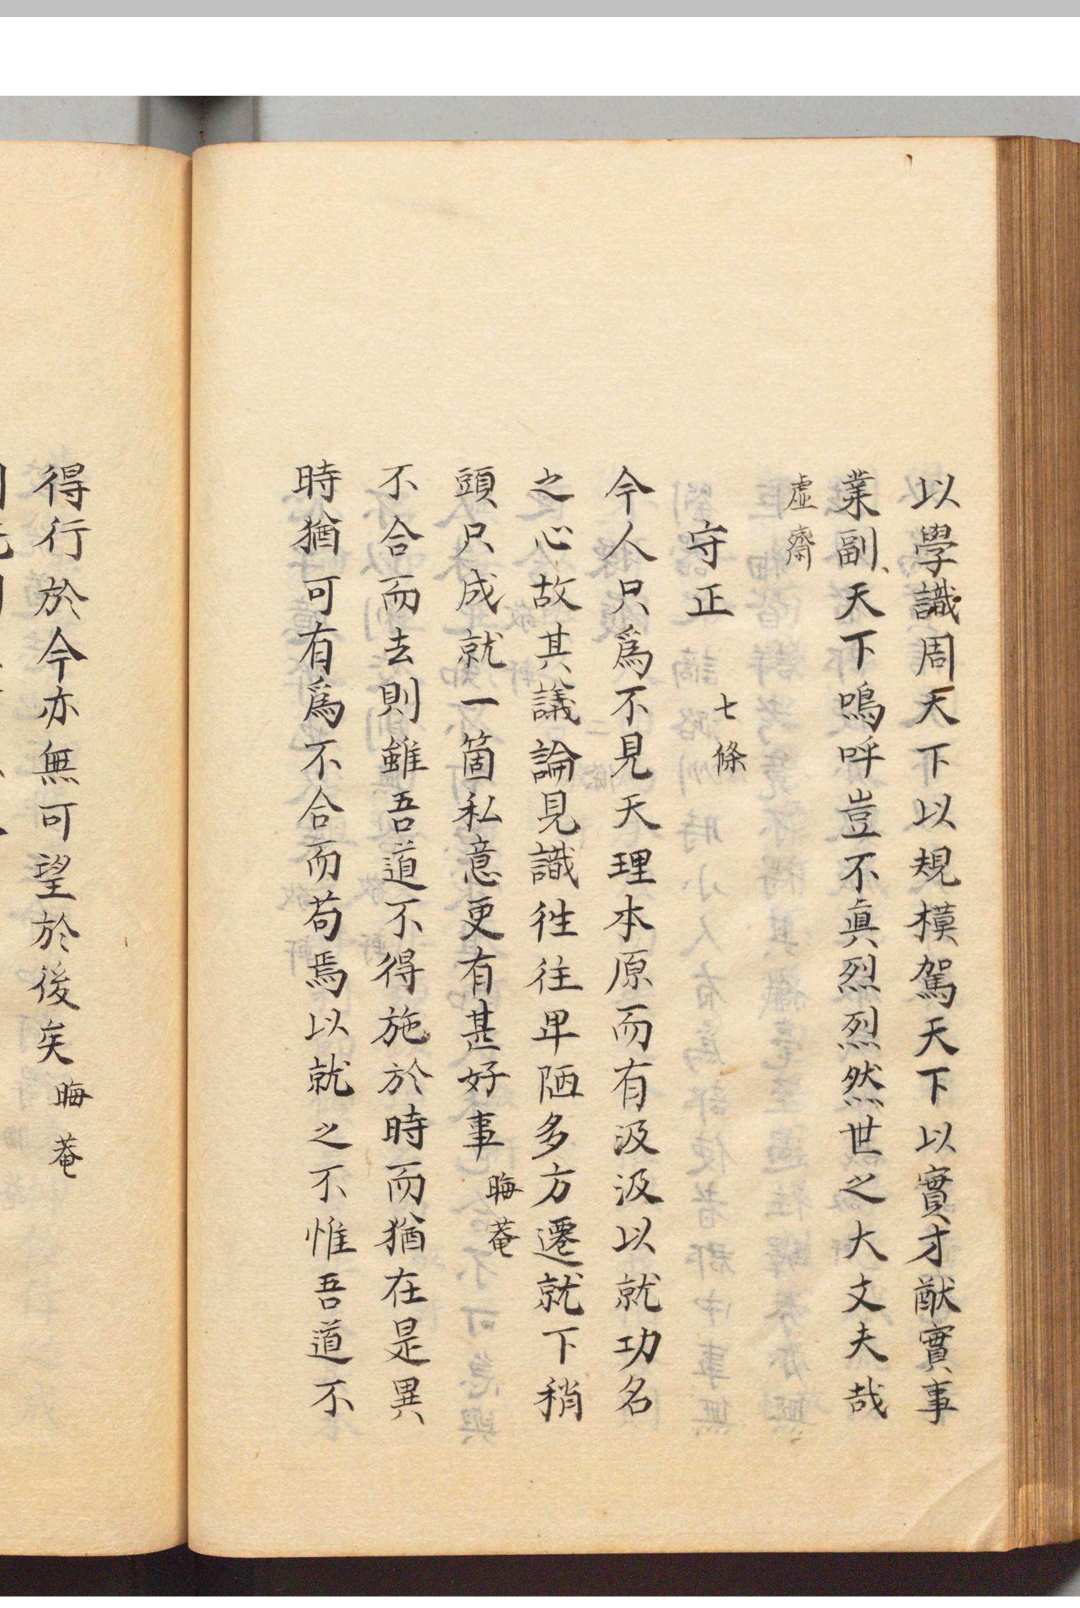 以學識周天下以規模駕天下以實才猷實事
業副天下嗚呼豈不眞烈烈然世之大丈夫哉
虛齋
守正 七條
今人只爲不見天理本原而有汲汲以就功名
之心故其議論見識往往卑陋多方遷就下稍
頭只成就一箇私意更有甚好事 晦菴
不合而去則雖吾道不得施於時而猶在是異
時猶可有爲不合而苟焉以就之不惟吾道不
得行於今亦無可望於後矣 晦菴